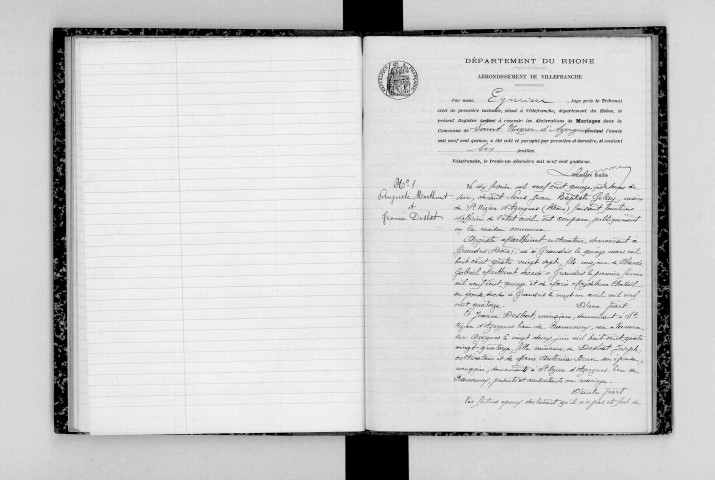 DÉPARTEMENT DU RHONE
ARRONDISSEMENT DE VILLEFRANCHE
Par nous, Juge près le Tribunal
civil de première instance, séant à Villefranche, département du Rhône, le
présent Registre destiné à recevoir les déclarations de Mariages dans la
Commune de Saint Nizier d'Azergues pendant l'année
mil neuf cent quinze, a été coté et paraphé par première et dernière, et contient
six feuilles.
Villefranche, le trente-un décembre mil neuf cent quatorze.
N° 1
Auguste
et
Jeanne Desbat
Le dix février mil neuf cent quinze
soir, devant Nous Jean Baptiste maire
de St Nizier d'Azergues (Rhône) faisant fonctions
d'officier de l'état civil ont comparu publiquement
en la maison commune
Auguste cultivateur, demeurant à
Grandris (Rhône), né à Grandris le quinze mars mil
huit cent quatre vingt sept, fils majeur de Claude
Gabriel décédé à Grandris le premier février
mil neuf cent quinze et de Marie Magdeleine
son épouse décédée à Grandris le vingt un avril mil neuf
cent quatorze. D'une part
Et Jeanne Desbat, demeurant à St
Nizier d'Azergues lieu de née à
sur Azergues le vingt deux juin mil huit cent quatre
vingt quatorze, fille mineure de Desbat Joseph,
cultivateur et de Marie Antoinette son épouse,
ménagère, demeurants à St Nizier d'Azergues, lieu de
présents et consentants au mariage.
D'autre part
Les futurs époux déclarent qu'il n'a pas été fait de